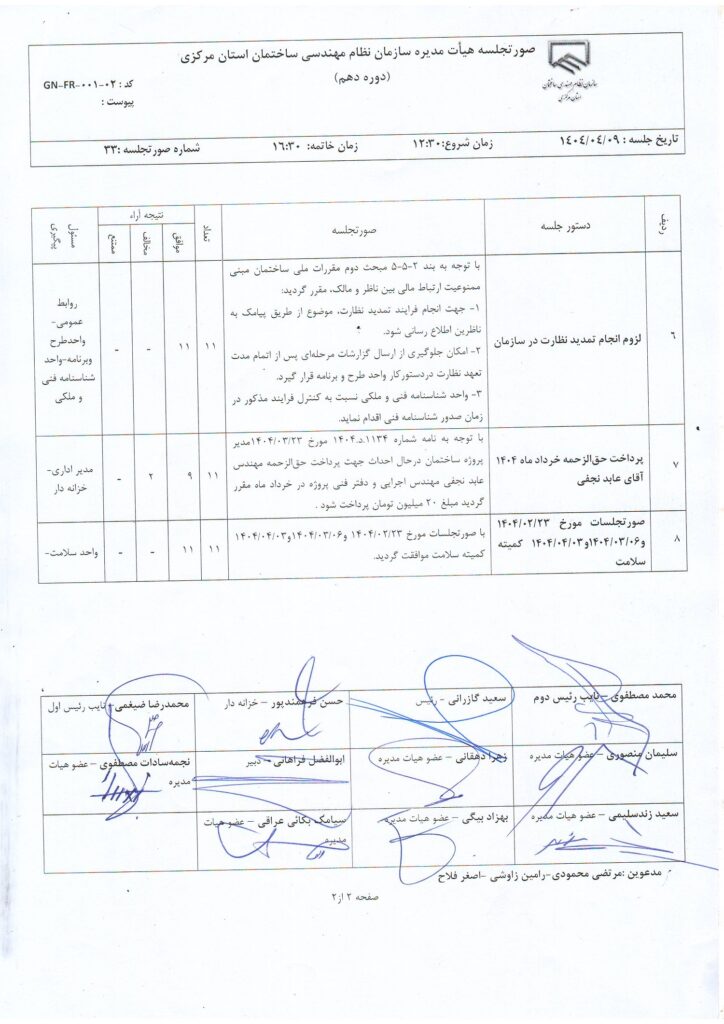 صورتجلسه هیأت مدیره سازمان نظام مهندسی ساختمان استان مرکزی
(دوره دهم)
سازمان نظام مهندسی ساختمان
استان مرکزی
کد : GN-FR-۰۰۱-۰۲
پیوست :
تاریخ جلسه : ۱۴۰۴/۰۴/۰۹ زمان شروع:۱۲:۳۰ زمان خاتمه: ۱۶:۳۰ شماره صورتجلسه :۳۳
ردیف دستور جلسه صورتجلسه تعداد نتیجه آراء مسئول پیگیری
موافق مخالف ممتنع
۶ لزوم انجام تمدید نظارت در سازمان
با توجه به بند ۲-۵-۵ مبحث دوم مقررات ملی ساختمان مبنی
ممنوعیت ارتباط مالی بین ناظر و مالک، مقرر گردید:
۱- جهت انجام فرایند تمدید نظارت، موضوع از طریق پیامک به
ناظرین اطلاع رسانی شود.
۲- امکان جلوگیری از ارسال گزارشات مرحله‌ای پس از اتمام مدت
تعهد نظارت دردستورکار واحد طرح و برنامه قرار گیرد.
۳- واحد شناسنامه فنی و ملکی نسبت به کنترل فرایند مذکور در
زمان صدور شناسنامه فنی اقدام نماید.
۱۱ ۱۱ - -
روابط
عمومی-
واحدطرح
وبرنامه-واحد
شناسنامه فنی
و ملکی
۷ پرداخت حق‌الزحمه خرداد ماه ۱۴۰۴
آقای عابد نجفی
با توجه به نامه شماره ۱۱۳۴.د.۱۴۰۴ مورخ ۱۴۰۴/۰۳/۲۳مدیر
پروژه ساختمان درحال احداث جهت پرداخت حق‌الزحمه مهندس
عابد نجفی مهندس اجرایی و دفتر فنی پروژه در خرداد ماه مقرر
گردید مبلغ ۲۰ میلیون تومان پرداخت شود .
۱۱ ۹ ۲ -
مدیر اداری-
خزانه دار
۸ صورتجلسات مورخ ۱۴۰۴/۰۲/۲۳
و۱۴۰۴/۰۳/۰۶و۱۴۰۴/۰۴/۰۳ کمیته
سلامت
با صورتجلسات مورخ ۱۴۰۴/۰۲/۲۳ و۱۴۰۴/۰۳/۰۶و۱۴۰۴/۰۴/۰۳
کمیته سلامت موافقت گردید.
۱۱ ۱۱ - -
واحد سلامت-
محمد مصطفوی – نایب رئیس دوم سعید گازرانی - رئیس حسن فرهمندپور – خزانه دار محمدرضا ضیغمی – نایب رئیس اول
سلیمان منصوری – عضو هیات مدیره زهرا دهقانی – عضو هیات مدیره ابوالفضل فراهانی – دبیر نجمه‌سادات مصطفوی – عضو هیات
مدیره
سعید زندسلیمی – عضو هیات مدیره بهزاد بیگی – عضو هیات مدیره سیامک بکائی عراقی – عضو هیات
مدیره
مدعوین :مرتضی محمودی-رامین زاوشی -اصغر فلاح
صفحه ۲ از۲